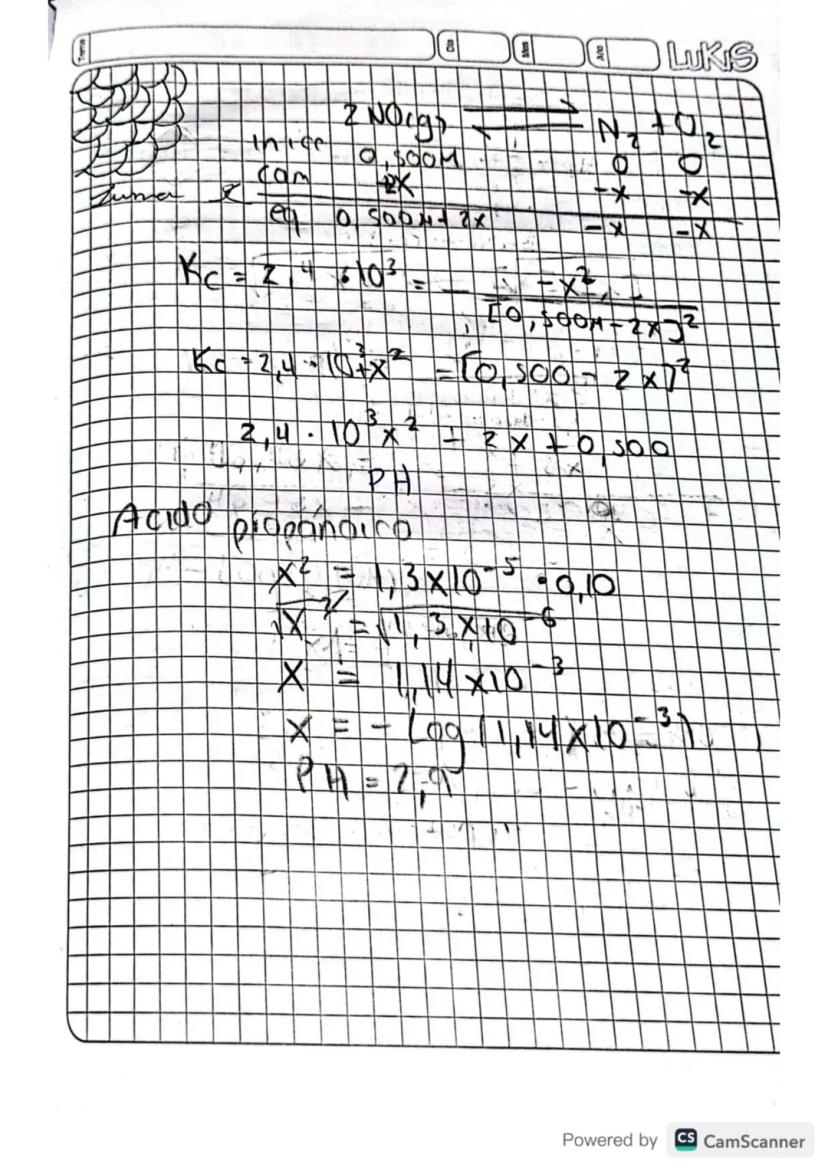 Tema Dia Mes Año LUKIS
2 NO(g) ⇌ N₂ + O₂
inicc 0,500M 0 0
cam +2x -x -x
Suma
eq 0,500M+2x -x -x
Kc = 2,4 · 10³ = -x² / [0,500M-2x]²
Kc = 2,4 · 10³+x² = [0,500 - 2x]²
2,4 · 10³x² - 2x + 0,500
PH
Acido propánoico
x² = 1,3x10⁻⁵ · 0,10
√x² = √1,3x10⁻⁶
x = 1,14x10⁻³
x = - Log(1,14x10⁻³)
PH = 2,9
Powered by CS CamScanner